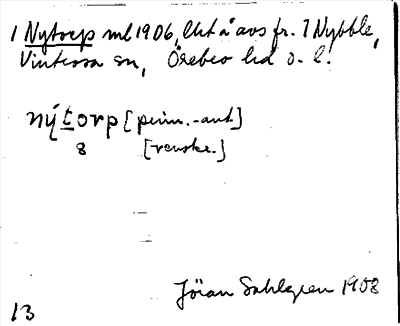 1 Nytorp ml 1906, litt å avs fr. 7 Nybble,
Vintrosa sn, Örebro hd o. l.
nýtorp [prim.-ant]
8 [renskr.]
Jöran Sahlgren 1908
13